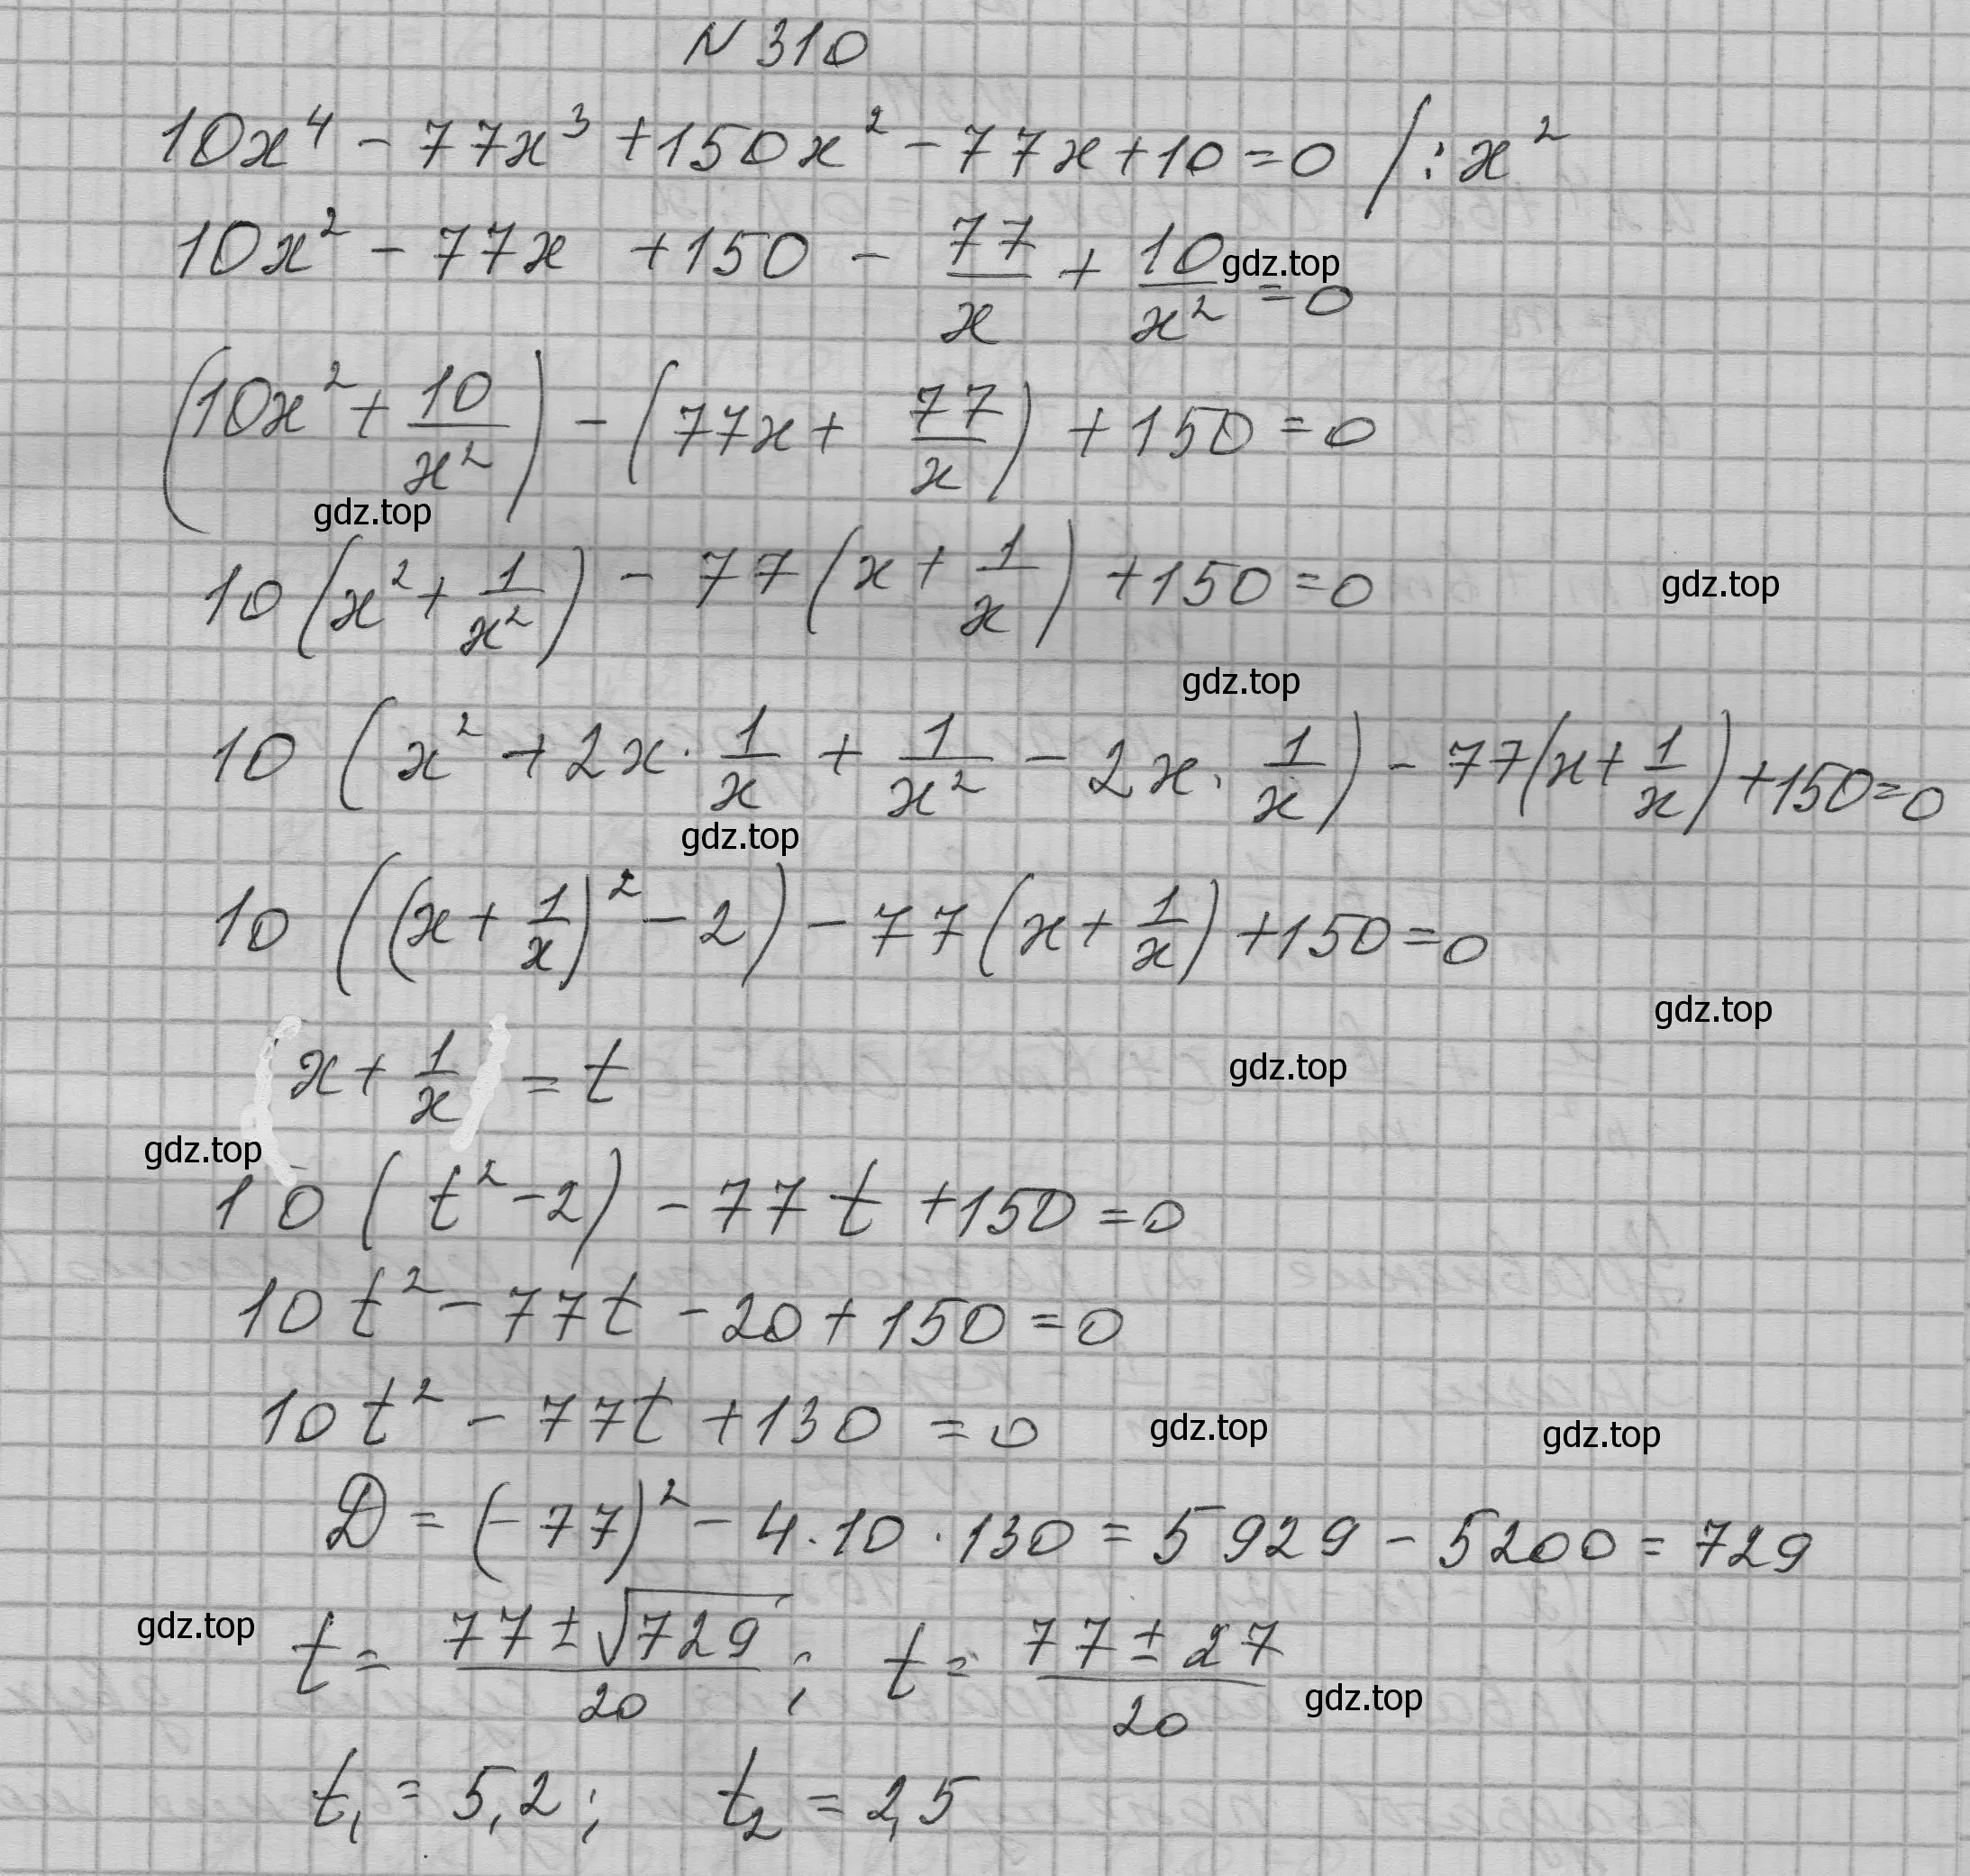 N 310
10x⁴ - 77x³ + 150x² - 77x + 10 = 0 / : x²
10x² - 77x + 150 - 77/x + 10/x² = 0
gdz.top
(10x² + 10/x²) - (77x + 77/x) + 150 = 0
gdz.top
10(x² + 1/x²) - 77(x + 1/x) + 150 = 0
gdz.top
gdz.top
10 (x² + 2x · 1/x + 1/x² - 2x · 1/x) - 77(x + 1/x) + 150 = 0
gdz.top
10 ((x + 1/x)² - 2) - 77(x + 1/x) + 150 = 0
gdz.top
x + 1/x = t
gdz.top
gdz.top
10 (t² - 2) - 77t + 150 = 0
10t² - 77t - 20 + 150 = 0
10t² - 77t + 130 = 0
gdz.top gdz.top
D = (-77)² - 4 · 10 · 130 = 5929 - 5200 = 729
gdz.top
t = (77 ± √729)/20 ; t = (77 ± 27)/20
gdz.top
t₁ = 5,2 ; t₂ = 2,5